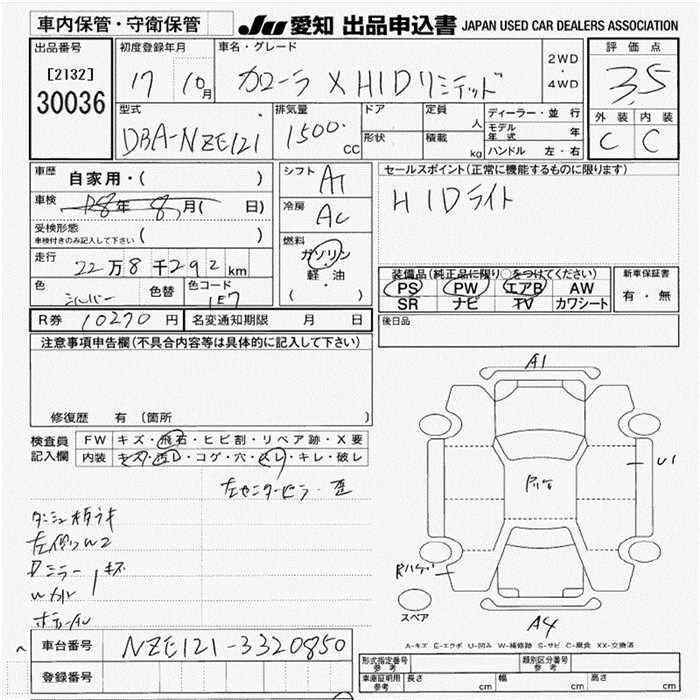 車内保管・守衛保管 JU 愛知 出品申込書 JAPAN USED CAR DEALERS ASSOCIATION
出品番号
[2132]
30036
初度登録年月
17 10月
車名・グレード
カローラ X HIDリミテッド
2WD
・
4WD
評価点
3.5
外装 内装
C C
型式
DBA-NZE121
排気量
1500 CC
ドア
形状
定員 人
積載 kg
ディーラー・並行
モデル年式 年
ハンドル 左・右
車歴 自家用・( )
車検 18年 8月( 日)
受検形態
車検付きのみ記入して下さい ( )
走行 22万8千292km
色 シルバー 色替 色コード 1E7
シフト AT
冷房 AC
燃料
ガソリン
・
軽油
( )
セールスポイント(正常に機能するものに限ります)
HIDライト
装備品(純正品に限り○をつけてください)
PS PW エアB AW
SR ナビ TV カワシート
新車保証書
有・無
R券 10270円 名変通知期限 月 日
後日品
注意事項申告欄(不具合内容等は具体的に記入して下さい)
修復歴 有 〔箇所
検査員記入欄
FW キズ・飛石・ヒビ割・リペア跡・X要
内装 キズ・汚レ・コゲ・穴・スレ・キレ・破レ
左センターピラー 歪
W2
ミラー キズ
A1
U1
スペア
A4
A-キズ E-エクボ U-凹み W-補修跡 S-サビ C-腐食 XX-交換済
車台番号 NZE121-3320850
登録番号
型式指定番号 参考
類別区分番号 参考
車庫証明用 参考 長さ cm 幅 cm 高さ cm